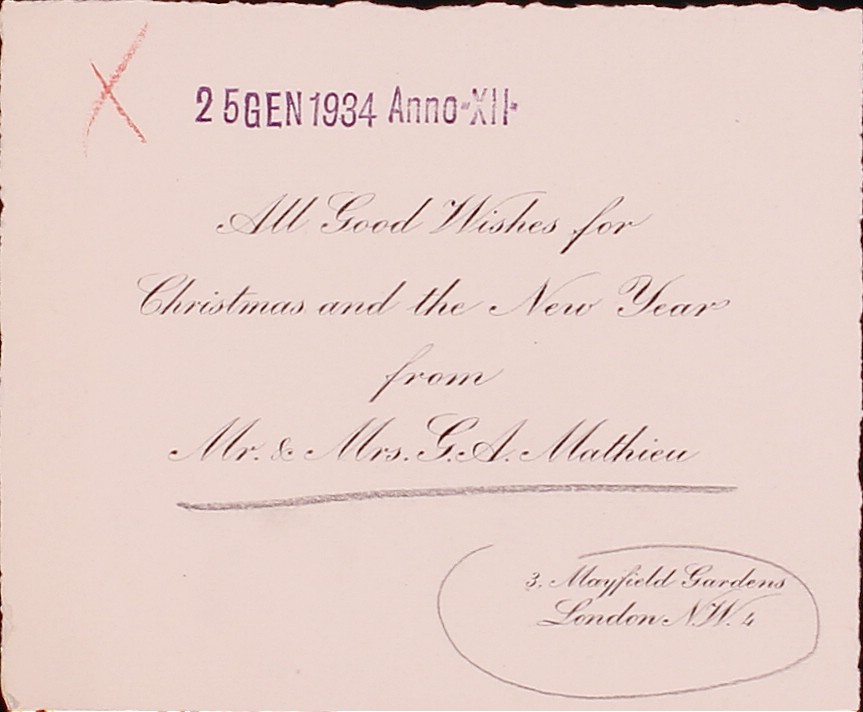 25GEN1934 Anno-XII-
All Good Wishes for
Christmas and the New Year
from
Mr. & Mrs. G.A. Mathieu
3, Mayfield Gardens
London N.W. 4